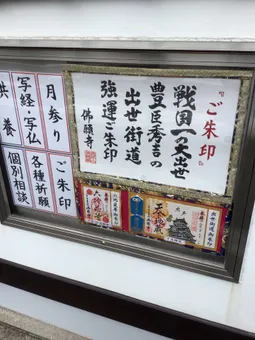 『ご朱印』
戦国一の大出世
豊臣秀吉の
出世街道
強運ご朱印
佛願寺
月参り
ご朱印
写経・写仏
各種祈願
供養
個別相談